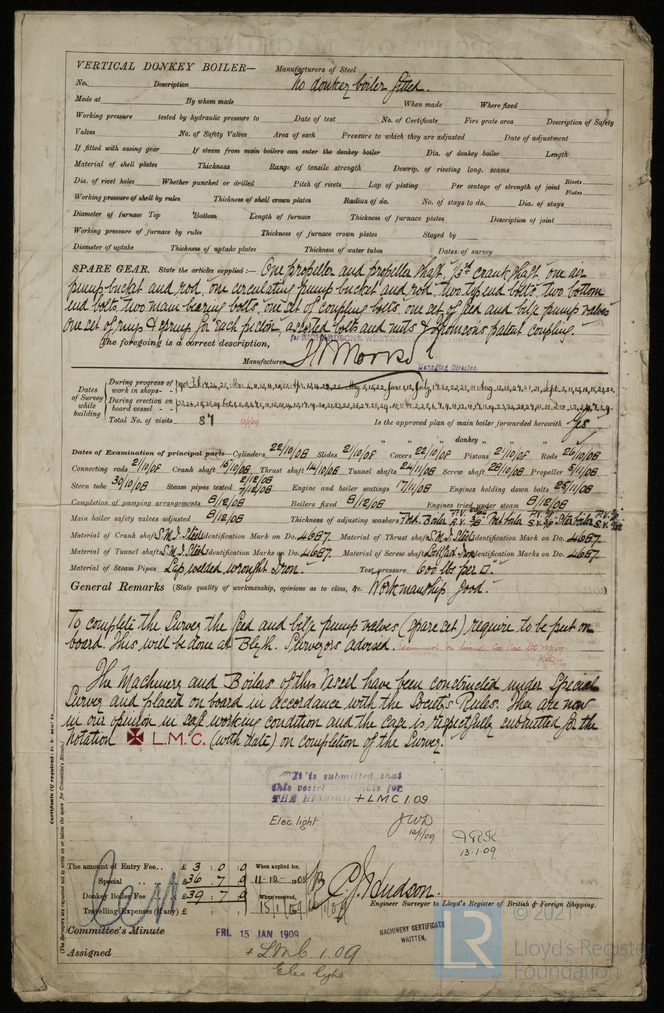 VERTICAL DONKEY BOILER— Manufacturers of Steel
No. Description No donkey boiler fitted.
Made at By whom made When made Where fixed
Working pressure tested by hydraulic pressure to Date of test No. of Certificate Fire grate area Description of Safety
Valves No. of Safety Valves Area of each Pressure to which they are adjusted Date of adjustment
If fitted with easing gear If steam from main boilers can enter the donkey boiler Dia. of donkey boiler Length
Material of shell plates Thickness Range of tensile strength Descrip. of riveting long. seams
Dia. of rivet holes Whether punched or drilled Pitch of rivets Lap of plating Per centage of strength of joint Rivets Plates
Working pressure of shell by rules Thickness of shell crown plates Radius of do. No. of stays to do. Dia. of stays
Diameter of furnace Top Bottom Length of furnace Thickness of furnace plates Description of joint
Working pressure of furnace by rules Thickness of furnace crown plates Stayed by
Diameter of uptake Thickness of uptake plates Thickness of water tubes Dates of survey
SPARE GEAR. State the articles supplied:— One propeller and propeller shaft, 1/3rd crank shaft, one air
pump bucket and rod, one circulating pump bucket and rod, two top end bolts, two bottom
end bolts, two main bearing bolts, one set of coupling bolts, one set of feed and bilge pump valves
One set of rings & springs for each piston, assorted bolts and nuts & Thomsons patent coupling.
The foregoing is a correct description,
Manufacturer
Managing Director.
Dates of Survey while building
During progress of work in shops--
During erection on board vessel ---
Total No. of visits 87
Is the approved plan of main boiler forwarded herewith Yes
" " " donkey " " "
Dates of Examination of principal parts—Cylinders 22/10/08 Slides 21/10/08 Covers 22/10/08 Pistons 21/10/08 Rods 26/10/08
Connecting rods 21/10/08 Crank shaft 15/10/08 Thrust shaft 14/10/08 Tunnel shafts 24/11/08 Screw shaft 28/10/08 Propeller 5/11/08
Stern tube 30/10/08 Steam pipes tested 7/12/08 Engine and boiler seatings 17/11/08 Engines holding down bolts 25/11/08
Completion of pumping arrangements 8/12/08 Boilers fixed 8/12/08 Engines tried under steam 8/12/08
Main boiler safety valves adjusted 8/12/08 Thickness of adjusting washers Port Boiler
Material of Crank shaft S.M.I. Steel Identification Mark on Do. 4687. Material of Thrust shaft S.M.I. Steel Identification Mark on Do. 4687
Material of Tunnel shafts S.M.I. Steel Identification Marks on Do. 4687. Material of Screw shafts Identification Marks on Do. 4687.
Material of Steam Pipes Lap welded wrought Iron. Test pressure 600 lbs per □"
General Remarks (State quality of workmanship, opinions as to class, &c. Workmanship good.
To complete the Survey the feed and bilge pump valves (spare set) require to be put on
board. This will be done at Blyth. Surveyors advised.
The Machinery and Boilers of this Vessel have been constructed under Special
Survey and placed on board in accordance with the Society's Rules. They are now
in our opinion in safe working condition and the case is respectfully submitted for the
notation ✠ L.M.C. (with date) on completion of the Survey.
It is submitted that
this vessel is eligible for
THE RECORD + LMC 1.09
Elec. light
JWD
12/1/09
13.1.09
Certificate (if required) to be sent to
(The Surveyors are requested not to write on or below the space for Committee's Minute.)
The amount of Entry Fee.. £ 3 : 0 : 0 When applied for,
Special .. .. £ 36 : 7 : 9 11-12-1908
Donkey Boiler Fee .. £ 39 : 7 : 9 When received,
Travelling Expenses (if any) £ : : 15/1/09
C. J. Hudson.
Engineer Surveyor to Lloyd's Register of British & Foreign Shipping.
Committee's Minute FRI. 15 JAN 1909
MACHINERY CERTIFICATE
WRITTEN.
Assigned + LMC 1.09
Elec light
© 2021
LR
Lloyd's Register
Foundation